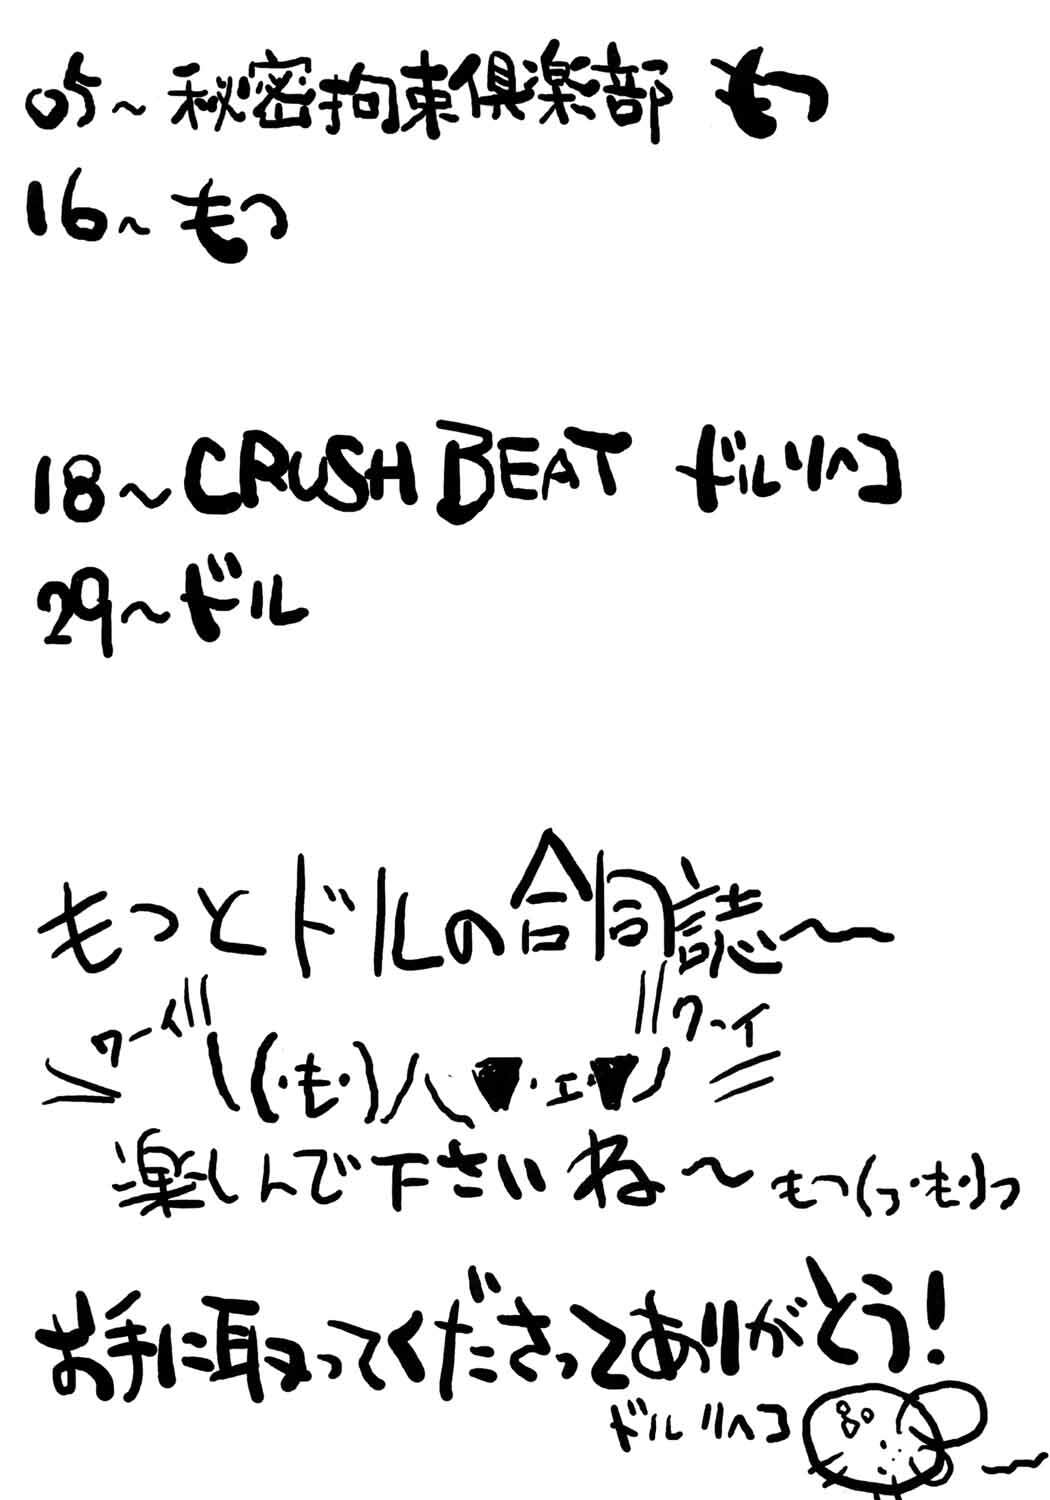 05～秘密拘束倶楽部 もつ
16～もつ
18～CRUSH BEAT ドルリヘコ
29～ドル
もつとドルの合同誌～
ワーイ
ワーイ
\(・も・)人▼・ェ・▼ノ
楽しんで下さいね～ もつ(っ・も・)っ
お手に取ってくださってありがとう!
ドルリヘコ